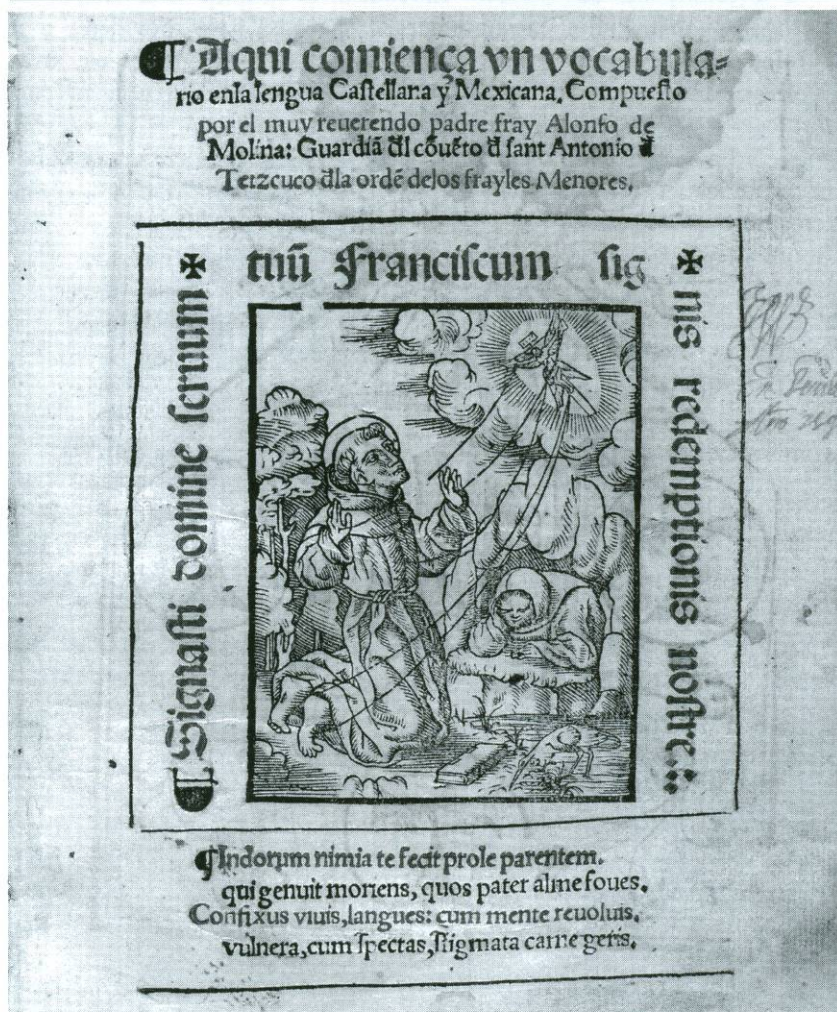 ¶ Aqui comiença vn vocabula=
rio enla lengua Castellana y Mexicana. Compuesto
por el muy reuerendo padre fray Alonso de
Molina: Guardiã dl cõuẽto d sant Antonio d
Tetzcuco dla ordẽ delos frayles Menores.
¶ Signasti domine seruum ✠
tuũ Franciscum sig
✠ nis redemptionis nostre
¶ Indorum nimia te fecit prole parentem.
qui genuit moriens, quos pater alme foues.
Confixus viuis, langues: cum mente reuoluis,
vulnera, cum spectas, stigmata carne geris.